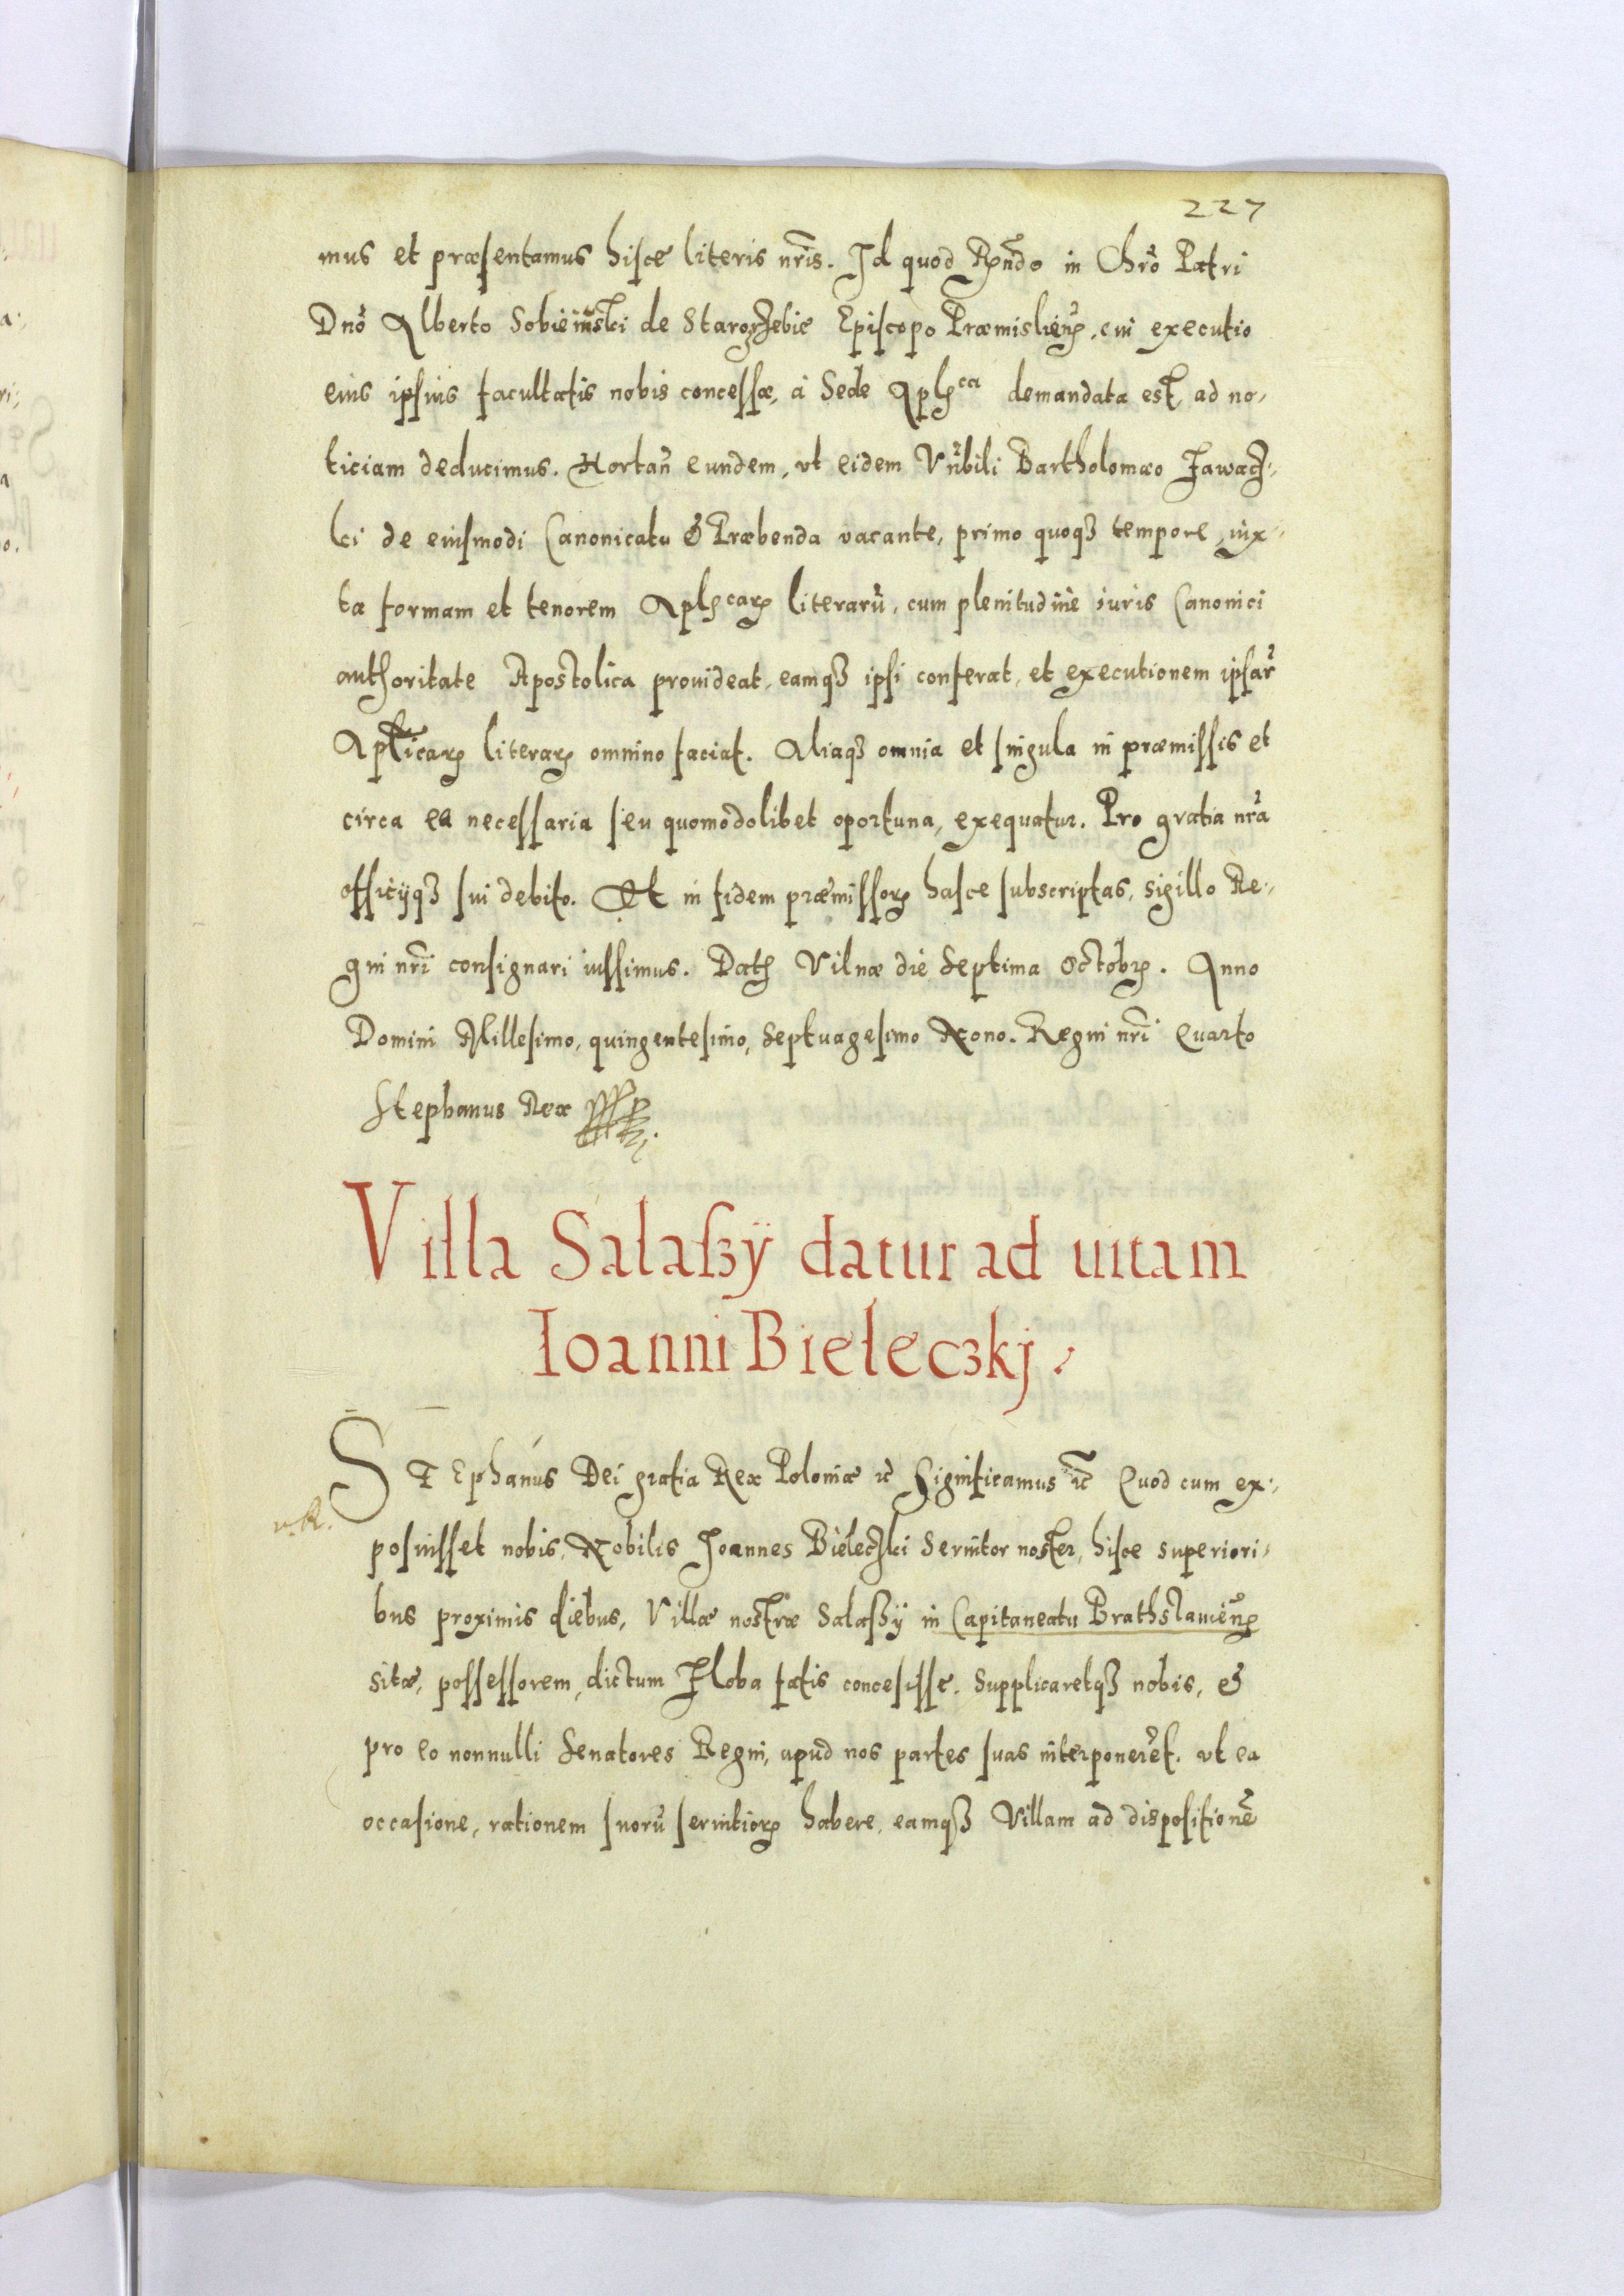 227
mus et præsentamus hisce literis nr̃is. Id quod Rndo in Chrõ Patri
Dnõ Alberto Sobieiuski de Starozrzebie Episcopo Præmislien̄, cui executio
eius ipsius facultatis nobis concessæ, à Sede Aplca demandata est, ad no-
ticiam deducimus. Hortañ eundem, vt eidem Vñbili Bartholomæo Jawacz-
ki de eiusmodi Canonicatu & Præbenda vacante, primo quoqꝫ tempore, iux-
ta formam et tenorem Aplcarꝝ literarũ, cum plenitudine iuris Canonici
authoritate Apostolica prouideat, eamqꝫ ipsi conferat, et executionem ipsar̃
Aplicarꝝ literarꝝ omnino faciat. Aliaqꝫ omnia et singula in præmissis et
circa ea necessaria seu quomodolibet oportuna, exequatur. Pro gratia nr̃a
officijqꝫ sui debito. Et in fidem præmissorꝝ hasce subscriptas, sigillo Re-
gni nr̃i consignari iussimus. Dat Vilnæ die Septima Octobr. Anno
Domini Millesimo, quingentesimo, Septuagesimo Nono. Regni nr̃i Quarto
Stephanus Rex
Villa Salaßÿ datur ad uitam
Ioanni Bieleczkj.
STEphanus Dei gratia Rex Poloniæ ꝛc̃ Significamus ꝛc̃ Quod cum ex-
v. R.
posuisset nobis, Nobilis Joannes Bieleczki Seruitor noster, hisce superiori-
bus proximis diebus, Villæ nostræ Salaßÿ in Capitaneatu Brathslauien̄
sitæ, possessorem, dictum Zloba fatis concesisse. Supplicaretqꝫ nobis, &
pro eo nonnulli Senatores Regni, apud nos partes suas interponerẽt. vt ea
occasione, rationem suorũ seruitiorꝝ habere, eamqꝫ Villam ad dispositionẽ